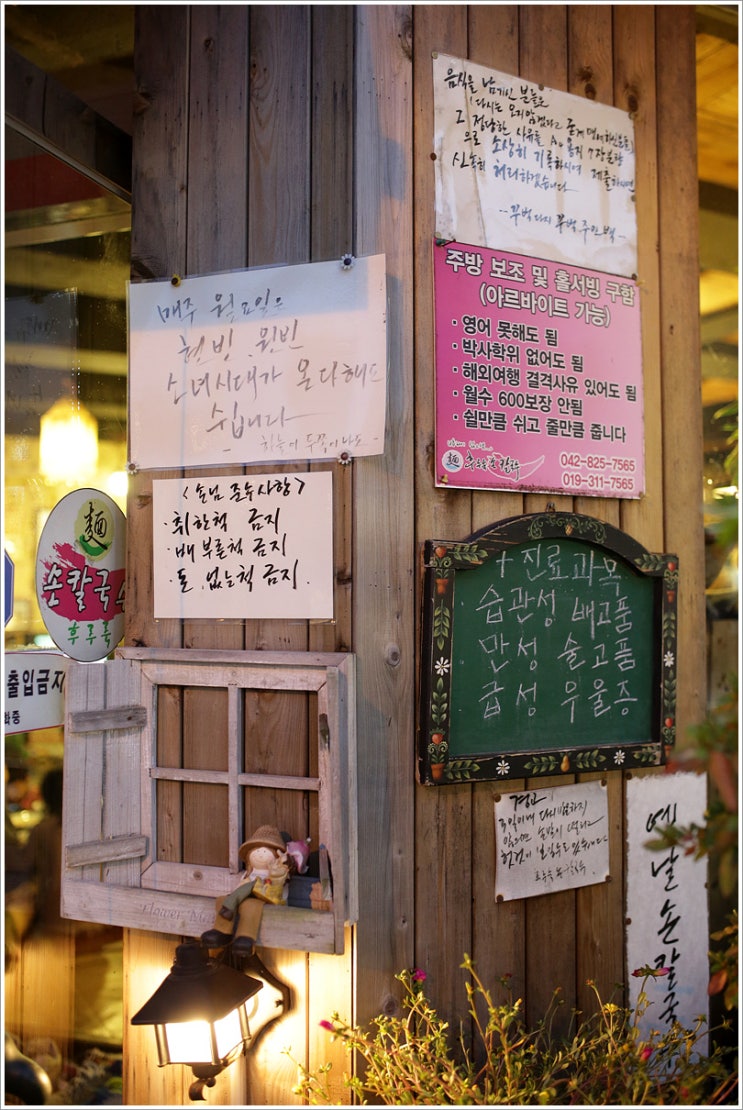 음식을 남기신 분들은
(다시는 오지않겠다고
그 정당한 사유를 A4 용지 7장분량
으로 소상히 기록하시여 제출하시면
신속히 처리하겠습니다
주방 보조 및 홀서빙 구함
(아르바이트 가능)
· 영어 못해도 됨
· 박사학위 없어도 됨
· 해외여행 결격사유 있어도 됨
· 월수 600보장 안됨
· 쉴만큼 쉬고 줄만큼 줍니다
麵
042-825-7565
019-311-7565
매주 월요일은
현빈, 원빈
소녀시대가 온다해도
쉽니다
<손님 준수사항>
· 취한척 금지
· 배부른척 금지
· 돈 없는척 금지.
麵
손칼국수
후루룩
출입금지
화중
+ 진료과목
습관성 배고픔
만성 술고픔
급성 우울증
경고
Flower
옛날손칼국